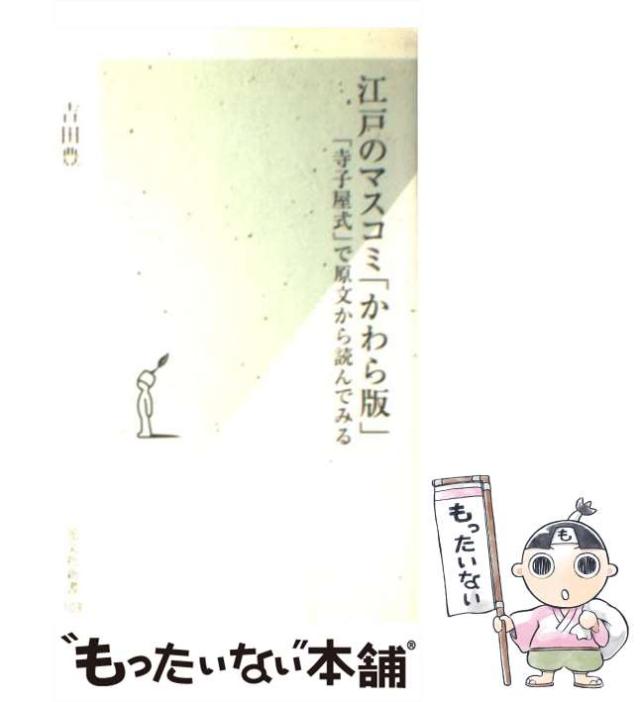 江戸のマスコミ「かわら版」
「寺子屋式」で原文から読んでみる
吉田豊
光文社新書
もったいない
も
“もったいない”本舗®